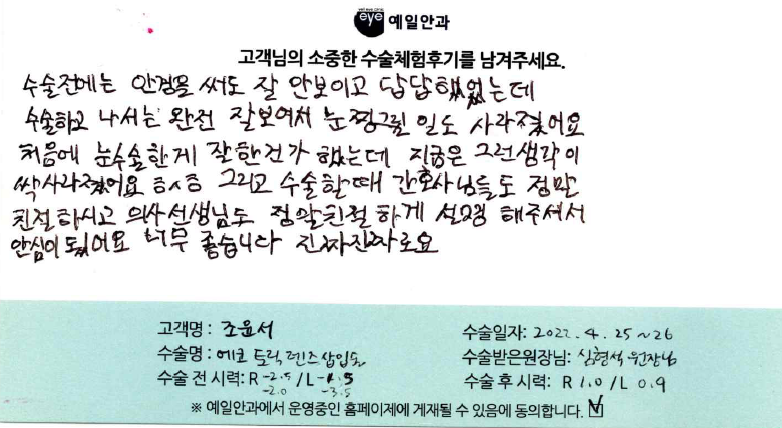 eye 예일안과
고객님의 소중한 수술체험후기를 남겨주세요.
수술전에는 안경을 써도 잘 안보이고 답답했었는데
수술하고 나서는 완전 잘보여서 눈찡그릴 일도 사라졌어요
처음에 눈수술한게 잘한건가 했는데 지금은 그런생각이
싹사라졌어요 ㅎㅅㅎ 그리고 수술할때 간호사님들도 정말
친절하시고 의사선생님도 정말친절 하게 설명 해주셔서
안심이 됐어요 너무 좋습니다 진짜진짜로요
고객명 : 조윤서
수술일자: 2022. 4. 25~26
수술명 : 에코 토릭렌즈삽입술
수술받은원장님: 심형석 원장님
수술 전 시력: R -2.5 / L -4.5
-2.0 -3.5
수술 후 시력: R 1.0 / L 0.9
※ 예일안과에서 운영중인 홈페이제에 게재될 수 있음에 동의합니다. ☑